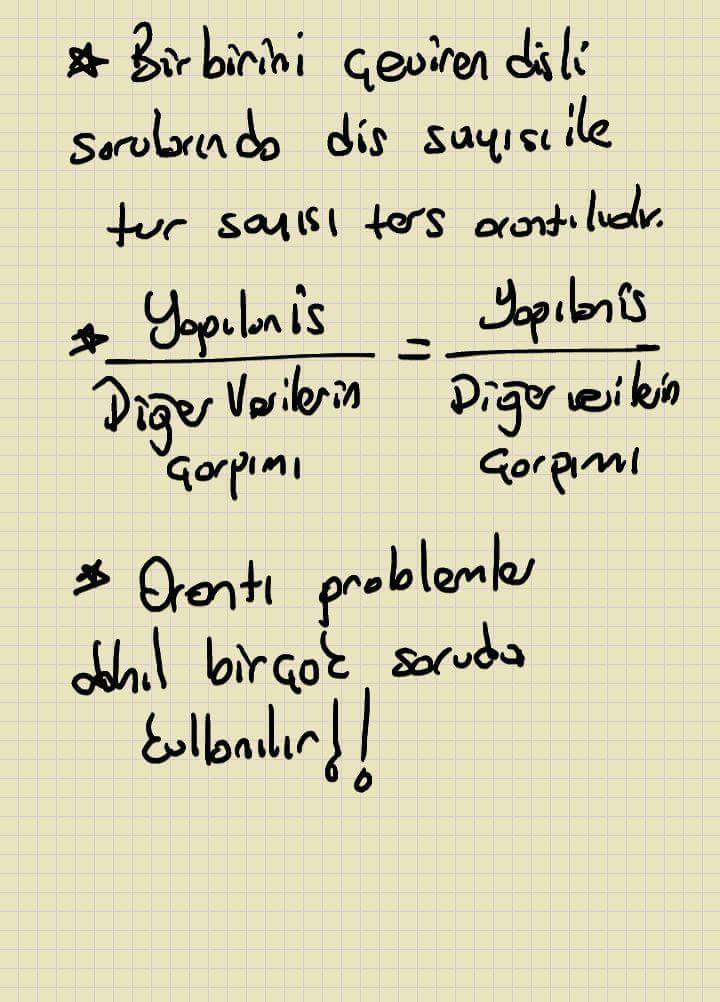 * Birbirini çeviren dişli
sorularında diş sayısı ile
tur sayısı ters orantılıdır.
* Yapılan iş = Yapılan iş
Diğer Verilerin Diğer verilerin
Çarpımı Çarpımı
* Orantı problemler
dahil birçok soruda
kullanılır!!